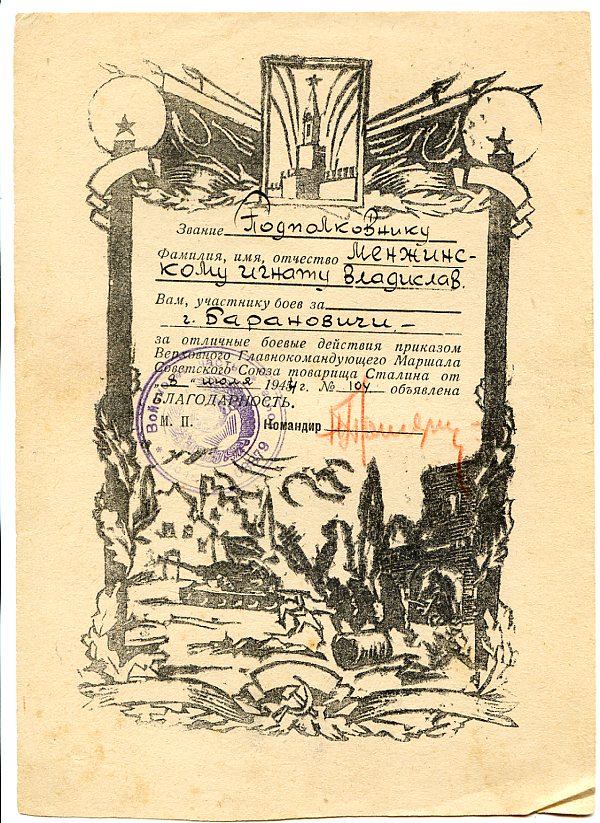 Звание Подполковнику
Фамилия, имя, отчество Менжинс-
кому Игнату Владислав.
Вам, участнику боев за
г. Барановичи. –
за отличные боевые действия приказом
Верховного Главнокомандующего Маршала
Советского Союза товарища Сталина от
„8“ июля 1944 г. № 104 объявлена
БЛАГОДАРНОСТЬ.
М. П. Командир